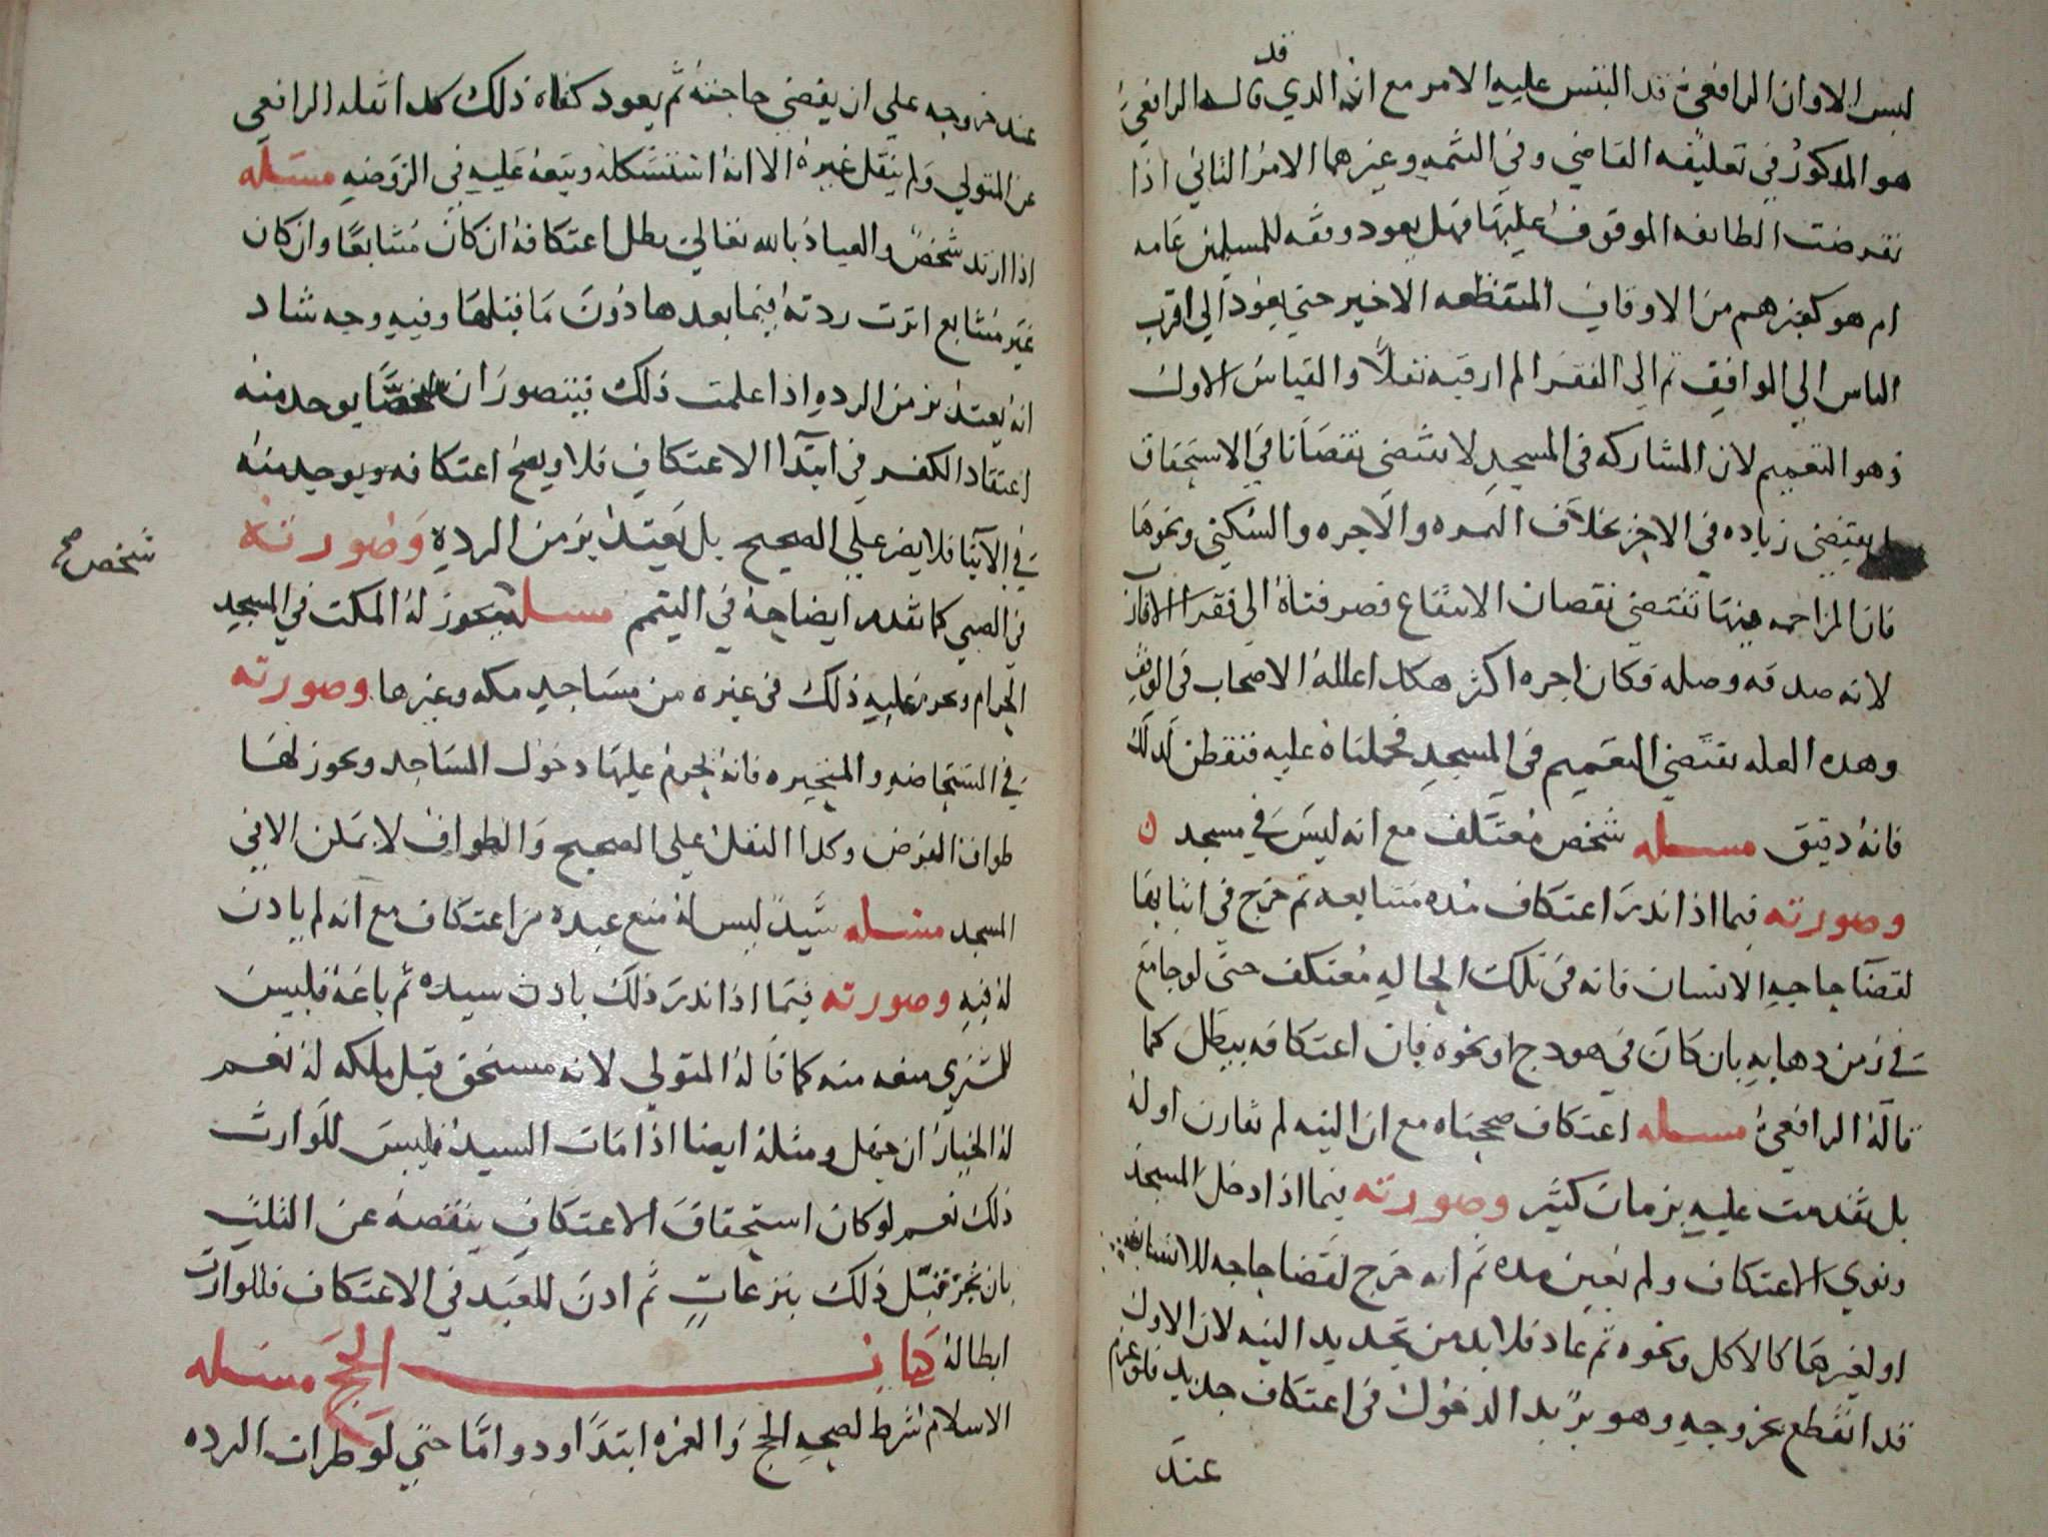 لبس الاوان الرافعي قد التبس عليه الامر مع انه الذي قد قاله الرافعي
هو المذكور في تعليقه القاضي وفي التتمه وغيرهما الامر الثاني اذا
نقرضت الطائفه الموقوف عليها فهل يعود وقفه للمسلمين عامه
ام هو كغيرهم من الاوقاف المنقطعه الاخير حتي يعود الي اقرب
الناس الي الواقف ثم الي الفقرا لم ار فيه نقلا والقياس الاول
وهو التعميم لان المشاركه في المسجد لا تقتضي نقصانا في الاستحقاق
بل يقتضي زياده في الاجر بخلاف الثمره والاجره والسكني ونحوها
فان المزاحمه فيها تقتضي نقصان الانتفاع فصرفناه الي فقرا الاقارب
لانه صدقه وصله فكان اجره اكثر هكذا علله الاصحاب في الوقف
وهذه العله تقتضي التعميم في المسجد فحملناه عليه فتفطن لذلك
فانه دقيق مسله شخص معتكف مع انه ليس في مسجد ن
وصورته فيما اذا نذر اعتكاف مده متتابعه ثم خرج في اثنايها
لقضا حاجه الانسان فانه في تلك الحاله معتكف حتي لو جامع
في زمن ذهابه بان كان في هودج او نحوه فان اعتكافه يبطل كما
قاله الرافعي مسله اعتكاف صححناه مع ان النيه لم تقارن اوله
بل تقدمت عليه بزمان كثير وصورته فيما اذا دخل المسجد
ونوي الاعتكاف ولم يعين مده ثم انه خرج لقضا حاجه للانسان
او لغيرها كالاكل ونحوه ثم عاد فلا بد من تجديد النيه لان الاول
قد انقطع بخروجه وهو يريد الدخول في اعتكاف جديد فلو عزم
عند
عند خروجه علي ان يقضي حاجته ثم يعود كفاه ذلك كذا نقله الرافعي
عن المتولي ولم ينقل غيره الا انه استشكله وتبعه عليه في الروضه مسله
اذا ارتد شخص والعياذ بالله تعالي بطل اعتكافه ان كان متتابعا وان كان
غير متتابع اثرت ردته فيما بعدها دون ما قبلها وفيه وجه شاد
انه يعتد بزمن الرده اذا علمت ذلك فيتصور ان شخصا يوجد منه
اعتقاد الكفر في ابتدا الاعتكاف فلا ويصح اعتكافه ويوجد منه
في الاثنا فلا يضر علي الصحيح بل يعتد بزمن الرده وصورته
في الصبي كما تقدم ايضاحه في التيمم مسله يجوز له المكث في المسجد
شخص صح
الحرام ويحرم عليه ذلك في غيره من مساجد مكه وغيرها وصورته
في المستحاضه والمتحيره فانه يحرم عليها دخول المساجد ويجوز لها
طواف الفرض وكذا النفل علي الصحيح والطواف لا يمكن الا في
المسجد مسله سيد ليس له منع عبده من اعتكاف مع انه لم يادن
له فيه وصورته فيما اذا نذر ذلك باذن سيده ثم باعه فليس
للمشتري منعه منه كما قاله المتولي لانه مستحق قبل ملكه له نعم
له الخيار ان جهل ومثله ايضا اذا مات السيد فليس للوارث
ذلك نعم لو كان استحقاق الاعتكاف ينقصه عن الثلث
بان نجز قبل ذلك بتبرعات ثم اذن للعبد في الاعتكاف فللوارث
ابطاله كتاب الحج مسله
الاسلام شرط لصحه الحج والعمره ابتدا ودواما حتي لو طرات الرده